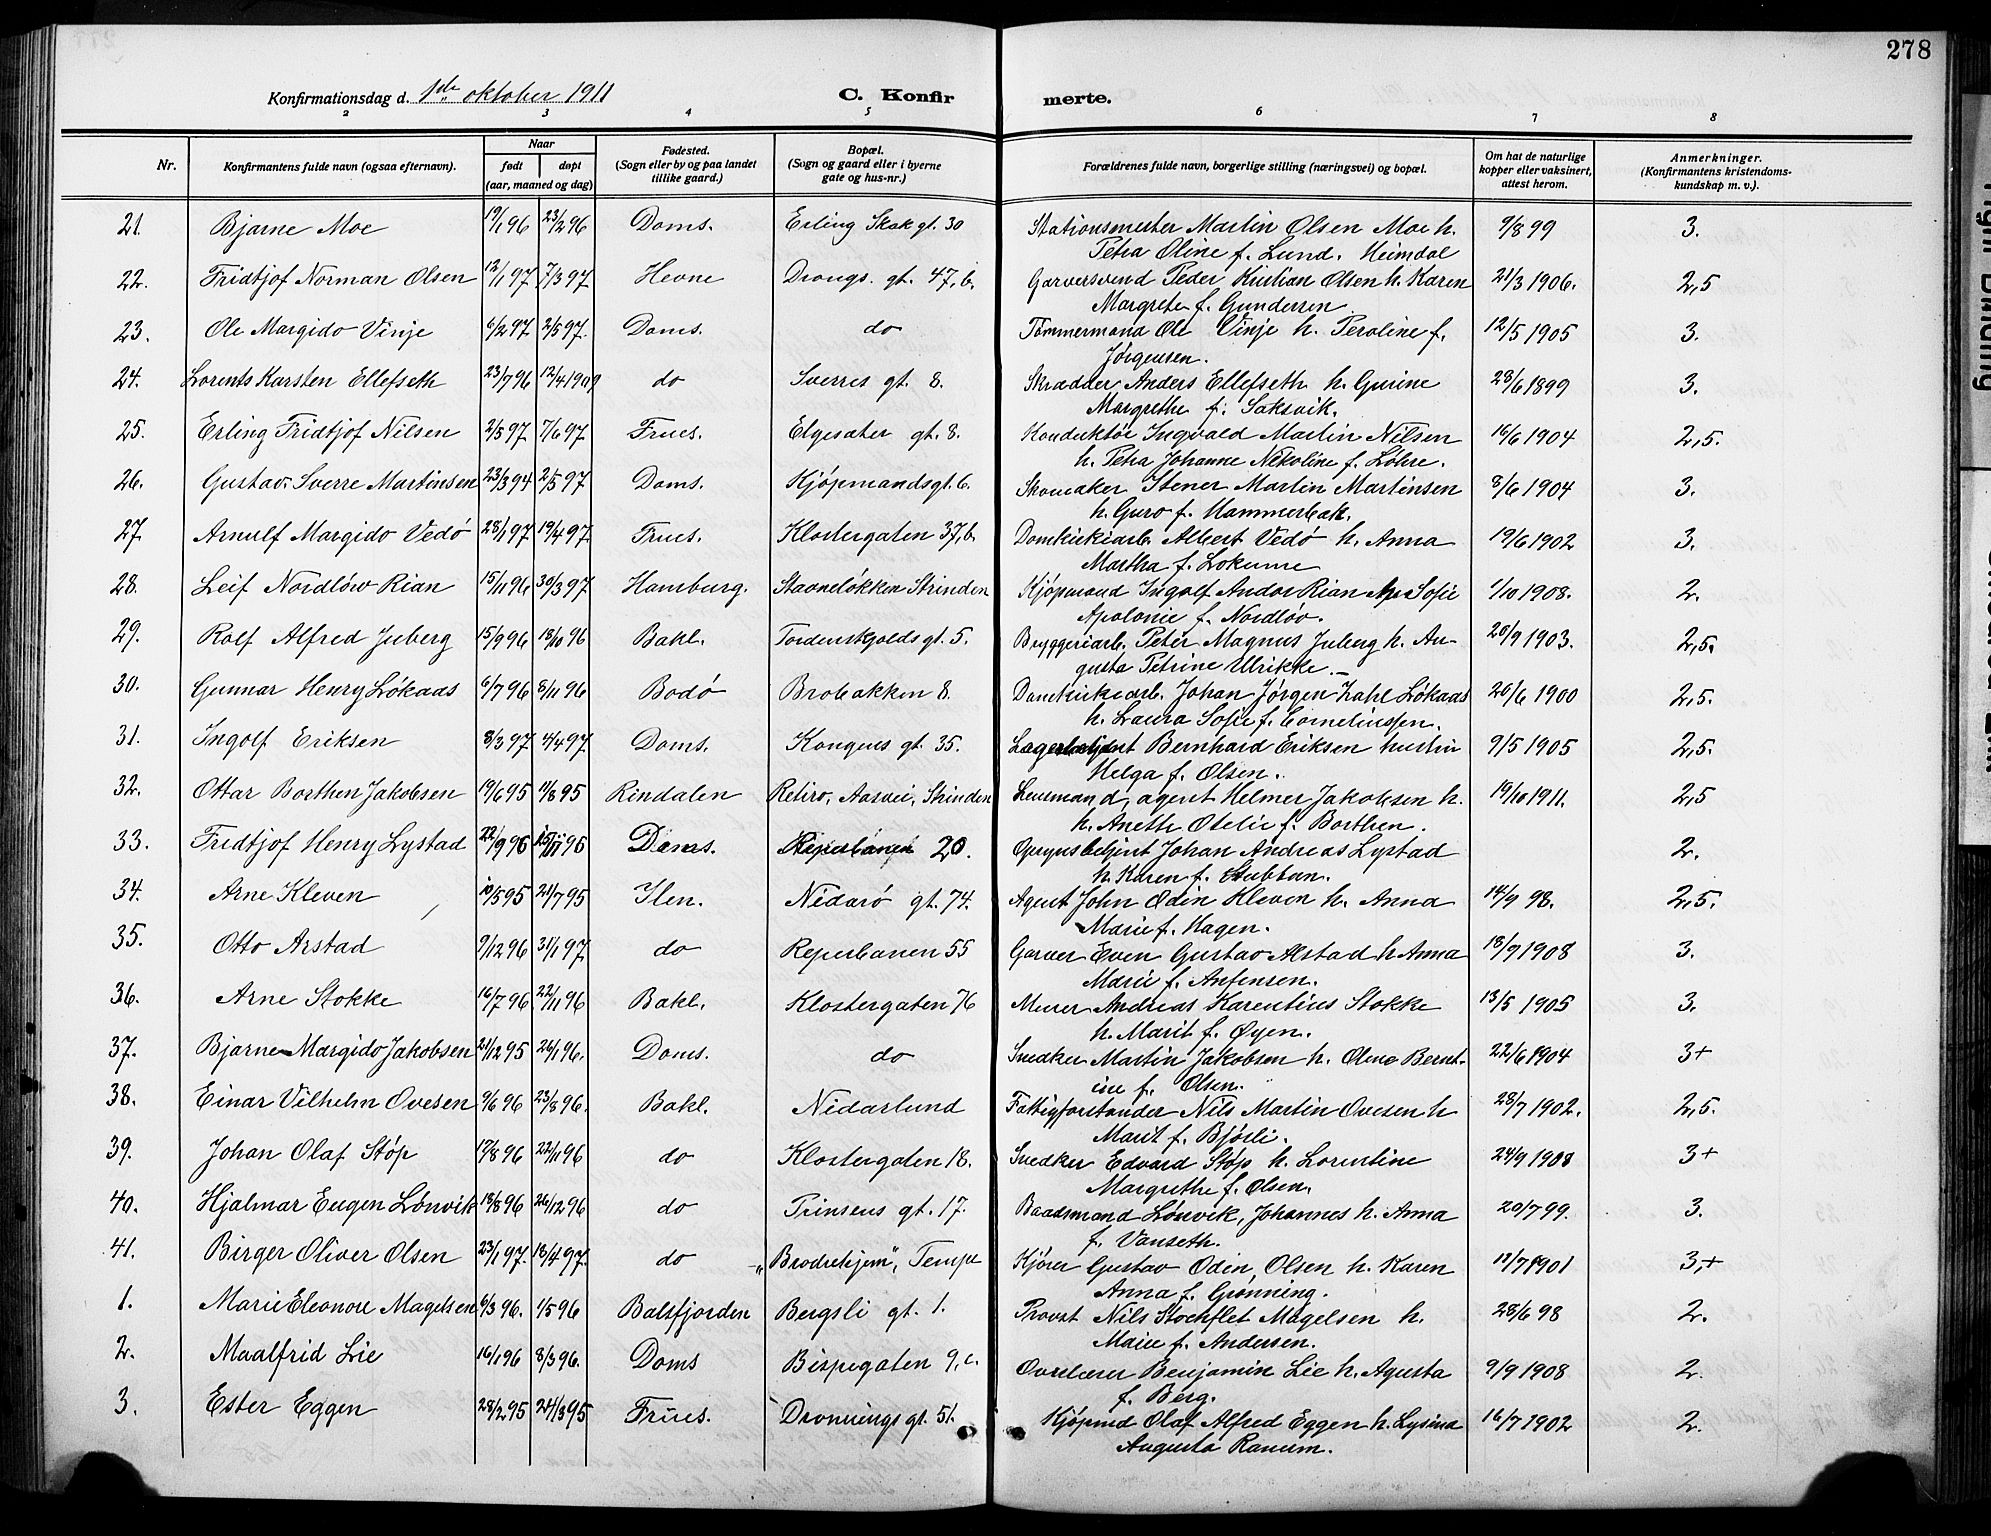 278
Konfirmationsdag d. 1ste oktober 1911 C. Konfir merte.
2 3 4 5 6 7 8
Nr. Konfirmantens fulde navn (ogsaa efternavn). Naar født døpt (aar, maaned og dag) Fødested. (Sogn eller by og paa landet tillike gaard.) Bopæl. (Sogn og gaard eller i byerne gate og hus-nr.) Forældrenes fulde navn, borgerlige stilling (næringsvei) og bopæl. Om hat de naturlige kopper eller vaksinert, attest herom. Anmerkninger. (Konfirmantens kristendoms- kundskap m. v.)
21. Bjarne Moe 19/1 96 23/2 96 Doms. Erling Skak gt. 30 Stationsmester Martin Olsen Moe h. 9/8 99 3.
Petra Oline f. Lund. Heimdal
22. Fridtjof Norman Olsen 12/1 97 7/3 97 Hevne Drongs. gt. 47,b. Garversvend Peder Kristian Olsen h. Karen 21/3 1906. 2,5
Margrete f. Gundersen
23. Ole Margido Vinje 6/2 97 2/5 97. Doms. do Tømmermand Ole Vinje h. Peroline f. 12/5 1905 3.
Jørgensen.
24. Lorents Karsten Ellefseth 23/7 96 12/4 1909 do Sverres gt. 8. Skrædder Anders Ellefseth h. Gurine 28/6 1899 3.
Margrethe f. Saksvik.
25. Erling Fridtjof Nilsen 2/5 97. 7/6 97. Frues. Elgesæter gt. 8. Konduktør Ingvald Martin Nilsen 16/6 1904 2,5.
h. Petra Johanne Nikoline f. Løhre.
26. Gustav Sverre Martinsen 23/3 94 2/5 97 Doms. Kjøpmandsgt. 6. Skomaker Stener Martin Martinsen 8/6 1904 3.
h. Guro f. Hammerbak.
27. Arnulf Margido Vedø 28/1 97 19/4 97. Frues. Klostergaten 37,b. Domkirkearb. Albert Vedø h. Anna 19/6 1902 3.
Martha f. Lokume
28. Leif Nordløw Rian 15/11 96 30/3 97. Hamburg. Stavneløkken Strinden Kjøpmand Ingolf Andor Rian h. Sofie 1/10 1908. 2.
Apolonie f. Nordløv.
29. Rolf Alfred Juberg 15/9 96 18/10 96 Bakl. Tordenskjolds gt. 5. Bryggeriarb. Peter Magnus Juberg h. Au- 20/9 1903. 2,5.
gusta Petrine Ulrikke.
30. Gunnar Henry Løkaas 6/7 96 8/11 96 Bodø Brobakken 8. Domkirkearb. Johan Jørgen Zahl Løkaas 20/6 1900 2,5.
h. Laura Sofie f. Corneliussen.
31. Ingolf Eriksen 8/3 97 4/4 97. Doms. Kongens gt. 35. Lagerbetjent Bernhard Eriksen hustru 9/5 1905 2,5.
Helga f. Olsen.
32. Ottar Borthen Jakobsen 19/6 95 11/8 95 Rindalen Retiro, Aasvei, Strinden Lensmand, agent Helmer Jakobsen h. 19/10 1911. 2,5
h. Anette Otelie f. Borthen.
33. Fridtjof Henry Lystad 22/9 96 15/11 96 Doms. Reperbanen 20. Opsynsbetjent Johan Andreas Lystad 2.
h. Karen f. Stubban.
34. Arne Kleven 10/5 95 21/7 95 Ilen. Nidarø gt. 74. Agent John Odin Kleven h. Anna 14/9 98. 2,5.
Marie f. Hagen.
35. Otto Arstad 9/12 96 31/1 97. do Reperbanen 55 Garver Even Gustav Alstad h Anna 18/9 1908 3.
Marie f. Anfensen.
36. Arne Stokke 16/7 96 22/11 96 Bakl. Klostergaten 76 Murer Andreas Karentius Stokke 13/5 1905 3.
h. Marit f. Øyen.
37. Bjarne Margido Jakobsen 21/12 95 26/1 96. Doms. do Snedker Martin Jakobsen h. Oline Bernt- 22/6 1904 3+
ine f. Olsen.
38. Einar Vilhelm Ovesen 9/6 96 23/8 96. Bakl. Nidarlund Fattigforstander Nils Martin Ovesen h 28/7 1902. 2,5.
Marit f. Bjørli.
39. Johan Olaf Støp 17/8 96 22/11 96 do Klostergaten 18. Snedker Edvard Støp h. Lorentine 24/9 1908 3+
Margrethe f. Olsen.
40. Hjalmar Eugen Lønvik 18/8 96 26/12 96 do Prinsens gt. 17. Baadsmand Lønvik, Johannes h. Anna 20/7 99. 3.
f. Vanseth.
41. Birger Oliver Olsen 23/1 97. 18/4 97. do "Brodrehjem", Tempe Kjører Gustav Odin Olsen h. Karen 12/7 1901 3,+
Anna f. Grønning.
1. Marie Eleonore Magelsen 6/3 96. 1/5 96 Balsfjorden Bergsli gt. 1. Provst Nils Stockflet Magelsen h. 28/6 98 2.
Marie f. Andersen.
2. Maalfrid Lie 16/1 96 8/3 96. Doms Bispegaten 9,c. Overlærer Benjamin Lie h. Agusta 9/9 1908 2.
f. Berg.
3. Ester Eggen 28/2 95 24/3 95 Frues. Dronnings gt. 51. Kjøpmd Olaf Alfred Eggen h. Lysina 16/7 1902 2.
Augusta Ranum.